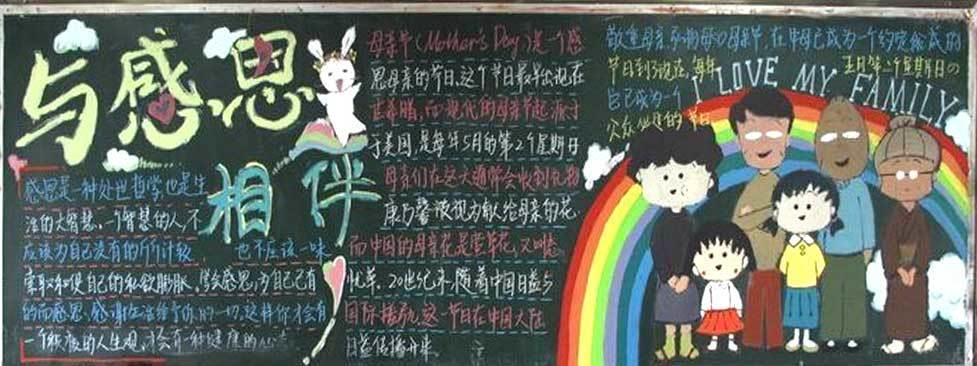 与感恩
相伴
感恩是一种处世哲学,也是生
活的大智慧,一个智慧的人,不
应该为自己没有的斤斤计较, 也不应该一味
索取和使自己的私欲膨胀,学会感恩,为自己已有
的而感恩,感谢生活给予你的一切,这样你才会有
一个积极的人生观,才会有一种健康的心态
母亲节(Mother's Day)是一个感
恩母亲的节日,这个节日最早出现在
古希腊,而现代的母亲节起源于
于美国,是每年5月的第2个星期日
母亲们在这天通常会收到礼物
康乃馨被视为献给母亲的花
而中国的母亲花是萱草花,又叫
忧草。20世纪末,随着中国日益与
国际接轨,这一节日在中国大陆
日益传播开来
母亲节,在中国已成为一个约定俗成的
节日到了现在,每年 五月第二个星期日
自己成为一个
公众 的节日
I LOVE MY FAMILY